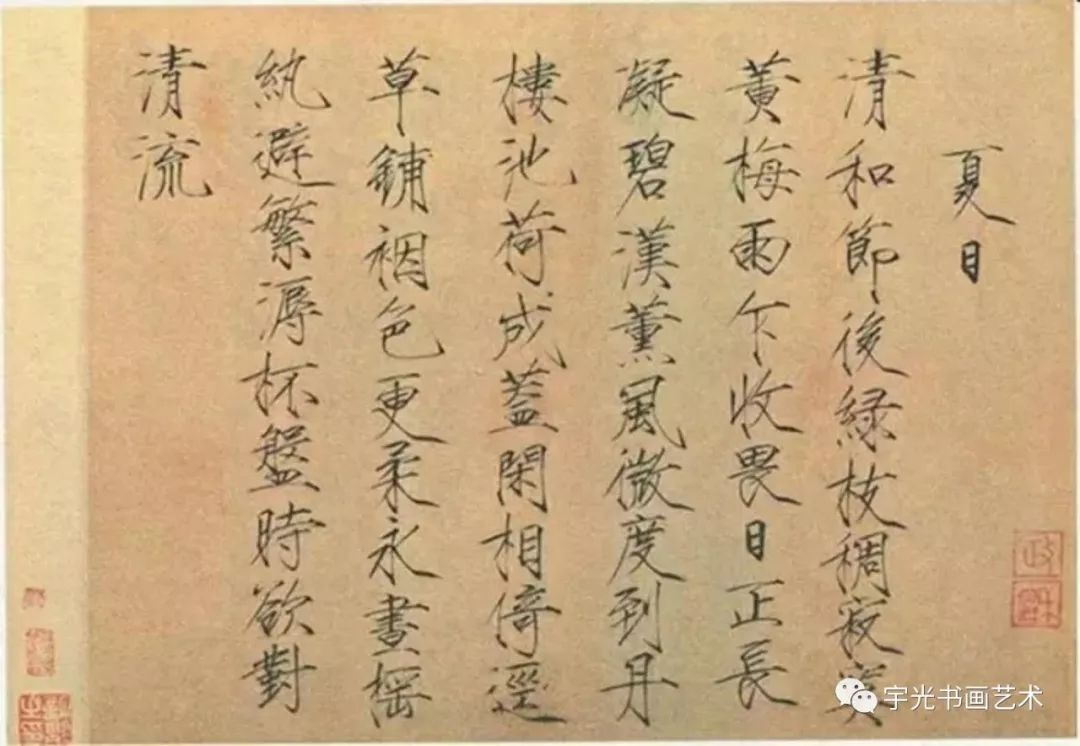 夏日
清和節後綠枝稠寂寞
黃梅雨乍收畏日正長
凝碧漢薰風微度到丹
樓池荷成蓋閑相倚逕
草鋪裀色更柔永晝搖
紈避繁溽杯盤時欲對
清流
宇光书画艺术